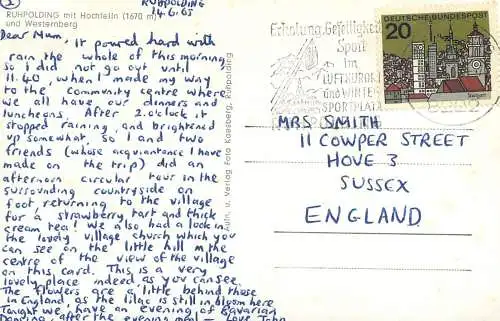 ②
RUHPOLDING
14.6.65
RUHPOLDING mit Hochfelln (1670 m)
und Westernberg
Dear Mum, It poured hard with
rain the whole of this morning
so I did not go out until
11.40 when I made my way
to the community centre where
we all have our dinners and
luncheons. After 2.o'clock it
stopped raining, and brightened
up somewhat, so I and two
friends (whose acquaintance I have
made on the trip) did an
afternoon circular tour in the
surrounding countryside on
foot returning to the village
for a strawberry tart and thick
cream tea! We also had a look in
the lovely village church which you
can see on the little hill in the
centre of the view of the village
on this card. This is a very
lovely place indeed, as you can see.
The flowers are a little behind those
in England, as the lilac is still in bloom here
Tonight we, have an evening of Bavarian
Dancing after the evening meal - Love John
Aufn. u. Verlag Foto Kaesberg, Ruhpolding
Erholung, Geselligkeit
Sport
im
LUFTKURORT
und WINTER
SPORTPLATZ
DEUTSCHE BUNDESPOST
20
MRS SMITH
11 COWPER STREET
HOVE 3
SUSSEX
ENGLAND